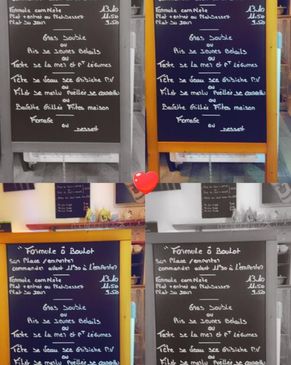 Formule comPlète 13.40
Plat+entrée ou Plat+Dessert 11.50
Plat Du Jour 9.50
Gras Double
ou
Ris de Jeunes Betails
ou
Tarte de la mer et Pt Légumes
Tête de Veau sce Gribiche P.V
ou
Filet de merlu Poêllée de
ou
Bavette Grillée Frites maison
Fromage
ou
Dessert
Formule comPlète 13.40
Plat+entrée ou Plat+Dessert 11.50
Plat Du Jour 9.50
Gras Double
ou
Ris de Jeunes Betails
ou
Tarte de la mer et Pt Légumes
Tête de Veau sce Gribiche P.V
ou
Filet de merlu Poêllée de
ou
Bavette Grillée Frites maison
Fromage
ou
Dessert
" Formule Ô Boulot
Sur Place/emporter
commander avant 11h30 à l'emporter
Formule comPlète 13.40
Plat+entrée ou Plat+Dessert 11.50
Plat Du Jour 9.50
Gras Double
ou
Ris de Jeunes Betails
ou
Tarte de la mer et Pt Légumes
Tête de Veau sce Gribiche P.V
ou
Filet de merlu Poêllée de
ou
" Formule Ô Boulot
Sur Place/emporter
commander avant 11h30 à l'emporter
Formule comPlète 13.40
Plat+entrée ou Plat+Dessert 11.50
Plat Du Jour 9.50
Gras Double
ou
Ris de Jeunes Betails
ou
Tarte de la mer et Pt Légumes
Tête de Veau sce Gribiche P.V
ou
Filet de merlu Poêllée de
ou